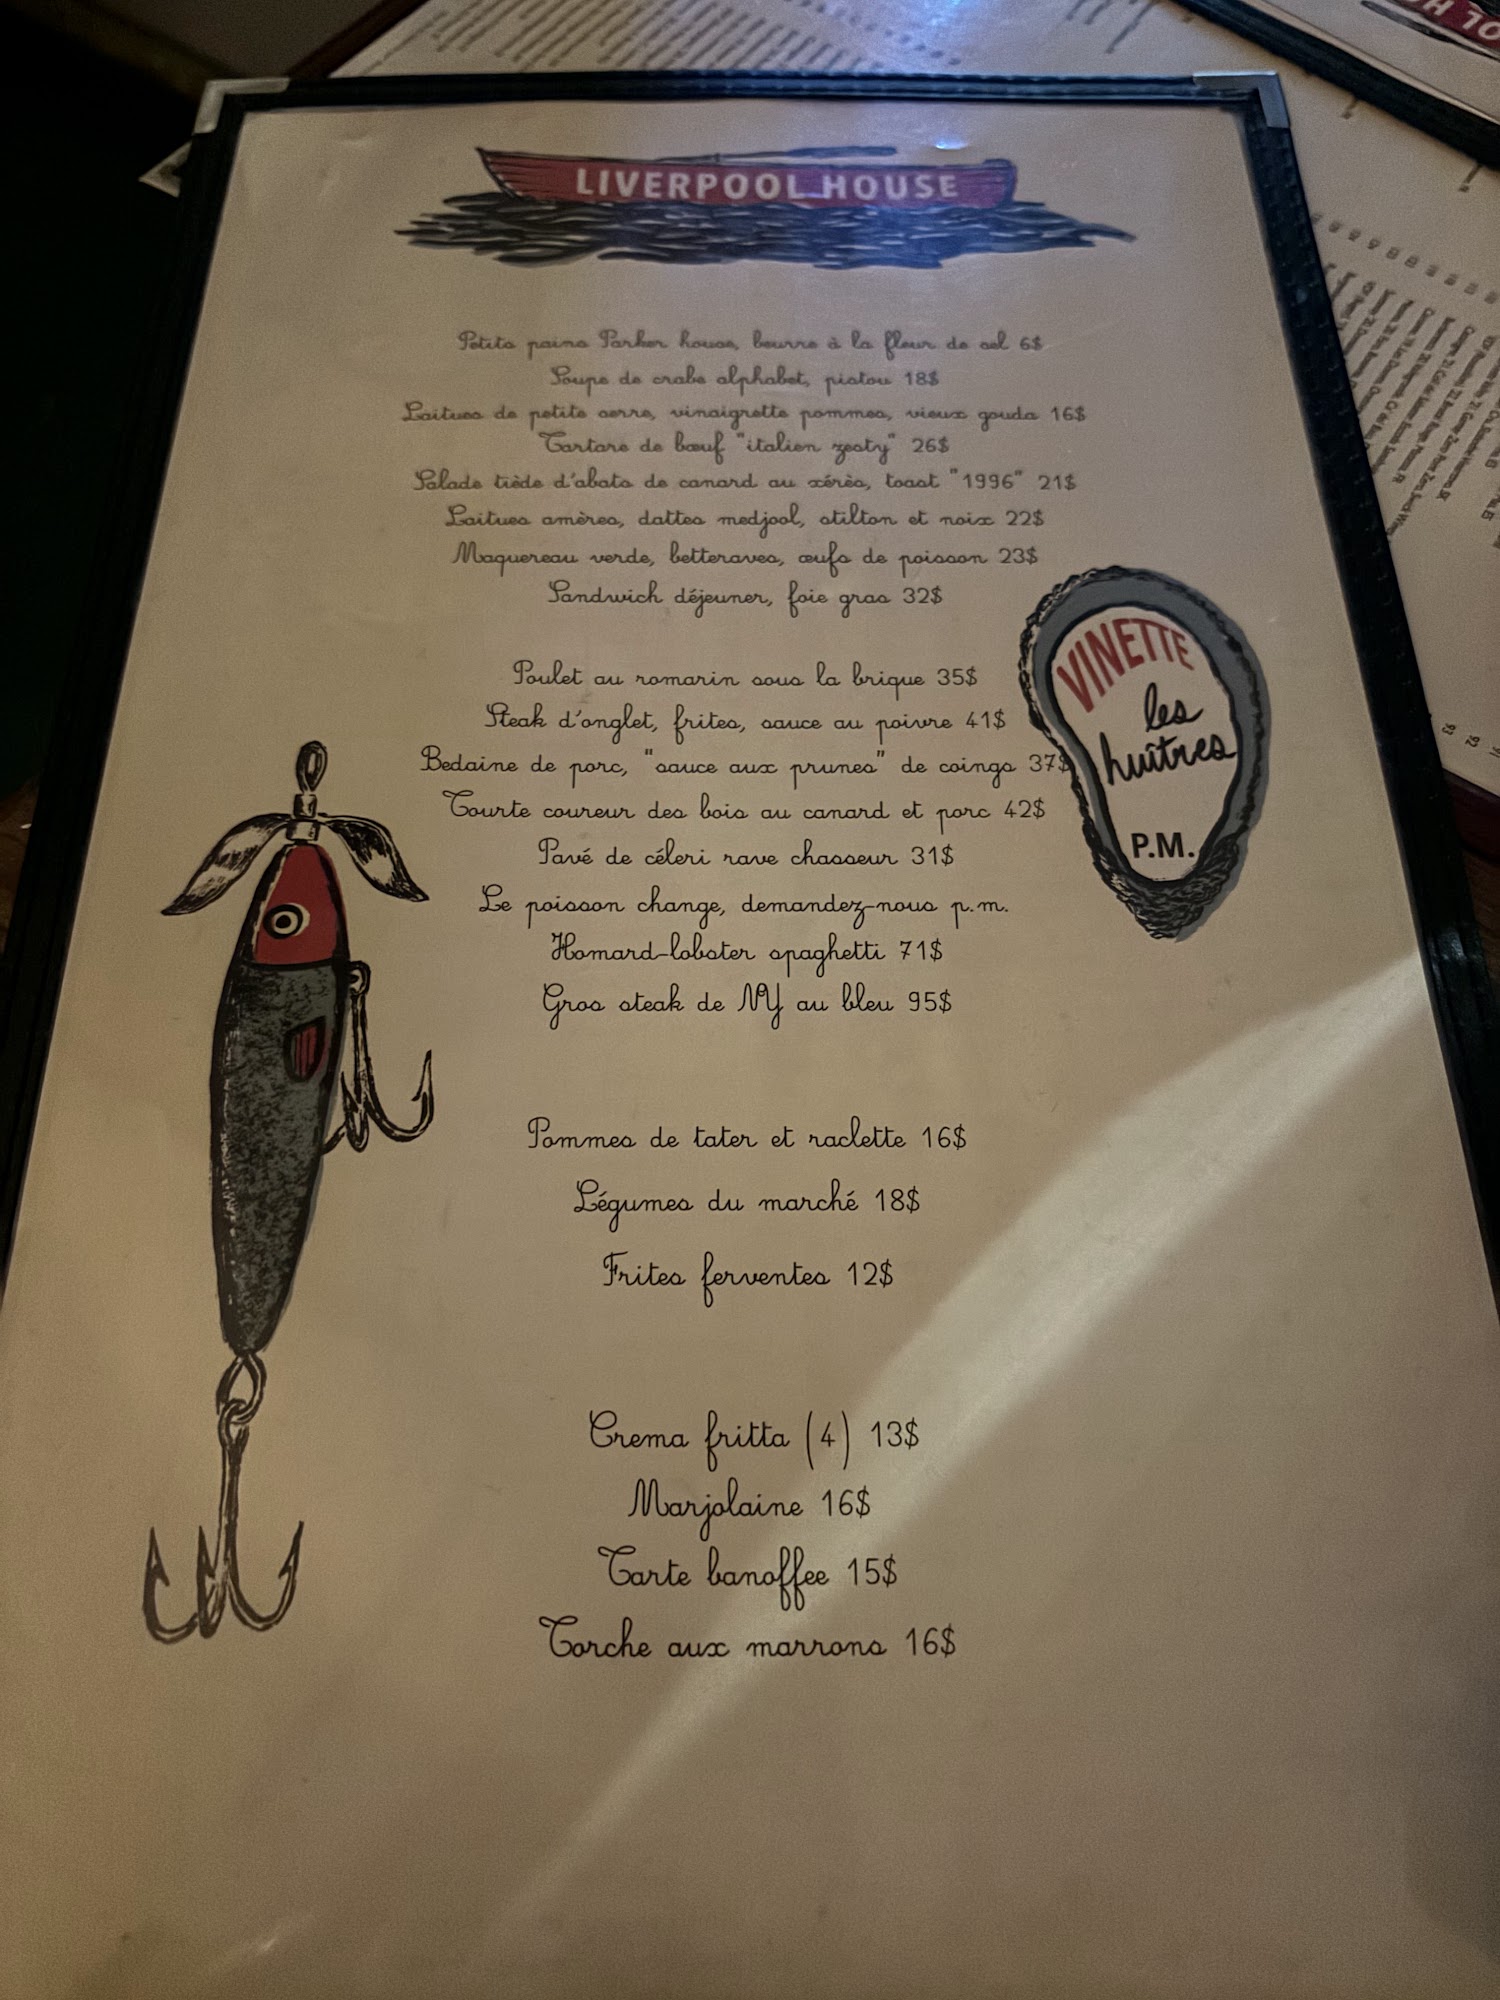 LIVERPOOL HOUSE
Petits pains Parker house, beurre à la fleur de sel 6$
Soupe de crabe alphabet, pistou 18$
Laitues de petite serre, vinaigrette pommes, vieux gouda 16$
Tartare de bœuf "italien zesty" 26$
Salade tiède d'abats de canard au xérès, toast "1996" 21$
Laitues amères, dattes medjool, stilton et noix 22$
Maquereau verde, betteraves, œufs de poisson 23$
Sandwich déjeuner, foie gras 32$
Poulet au romarin sous la brique 35$
Steak d'onglet, frites, sauce au poivre 41$
Bedaine de porc, "sauce aux prunes" de coings 37$
Tourte coureur des bois au canard et porc 42$
Pavé de céleri rave chasseur 31$
Le poisson change, demandez-nous p.m.
Homard-lobster spaghetti 71$
Gros steak de NY au bleu 95$
VINETTE
les
huîtres
P.M.
Pommes de tater et raclette 16$
Légumes du marché 18$
Frites ferventes 12$
Crema fritta (4) 13$
Marjolaine 16$
Tarte banoffee 15$
Torche aux marrons 16$